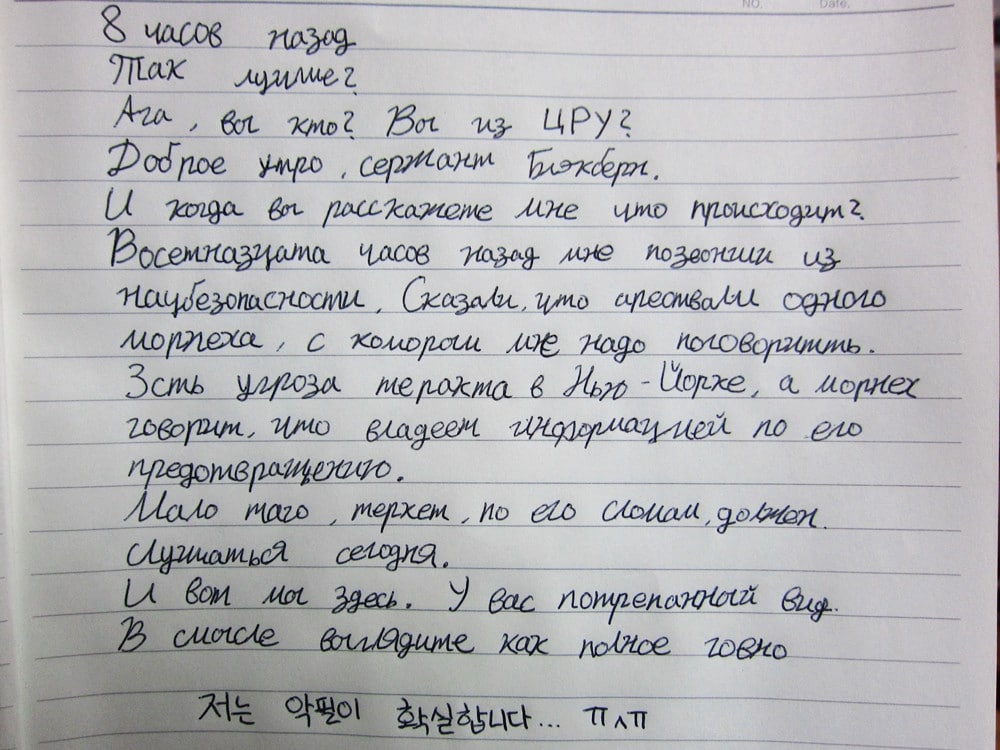 NO.
Date.
8 часов назад
Так лучше?
Ага, вы кто? Вы из ЦРУ?
Доброе утро, сержант Блэкберн.
И когда вы расскажете мне что происходит?
Восетназцата часов назад мне позвонили из
нацбезопасности, Сказали, что арествали одного
морпеха, с которым мне надо поговоритть.
Зсть угроза теракта в Нью-Йорке, а морпех
говорит, что владеет информацией по его
предотвращению.
Мало таго, терхет, по его словам, должен.
Случшаться сегодня.
И вот мы здесь. У вас потрепанный вид.
В смысле выглядите как полное говно
저는 악필이 확실합니다... ㅠㅅㅠ